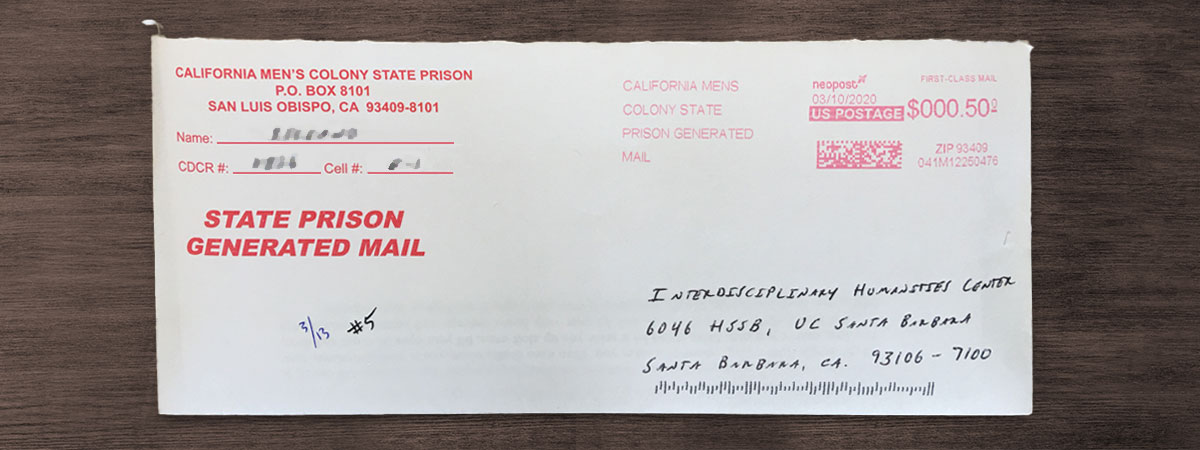 CALIFORNIA MEN'S COLONY STATE PRISON
P.O. BOX 8101
SAN LUIS OBISPO, CA 93409-8101
Name:
CDCR #: Cell #:
STATE PRISON
GENERATED MAIL
3/13 #5
CALIFORNIA MENS
COLONY STATE
PRISON GENERATED
MAIL
neopost
03/10/2020
US POSTAGE
FIRST-CLASS MAIL
$000.50⁰
ZIP 93409
041M12250476
INTERDISCIPLINARY HUMANITIES CENTER
6046 HSSB, UC SANTA BARBARA
SANTA BARBARA, CA. 93106-7100